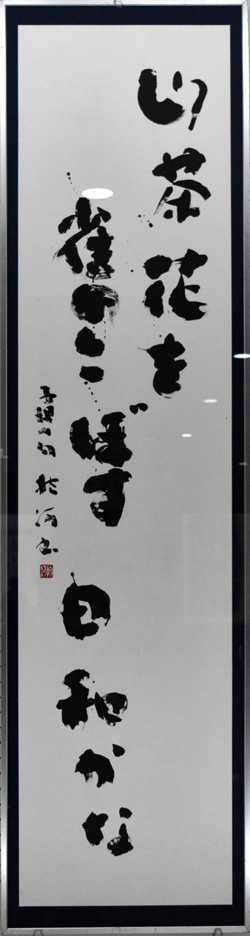 山茶花を
雀のこぼす 日和かな
子規の句